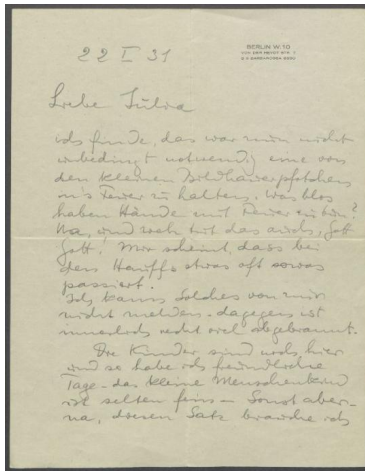 BERLIN W.10
VON DER HEYDT STR. 7
22 I 31
Liebe Julia
ich finde, das war nun nicht
unbedingt notwendig eine von
den kleinen Bildhauerpfötchen
in's Feuer zu halten. Was blos
haben Hände mit Feuer zu tun?
Na, und weh tut das auch, Gott
Gott! Mir scheint, dass bei
den Hauffs etwas oft sowas
passiert.
Ich kann Solches von mir
nicht melden. dagegen ist
innerlich recht viel abgebrannt.
Die Kinder sind noch hier
und so habe ich freundliche
Tage - das kleine Menschenkind
ist selten fein - Sonst aber -
na, diesen Satz brauche ich